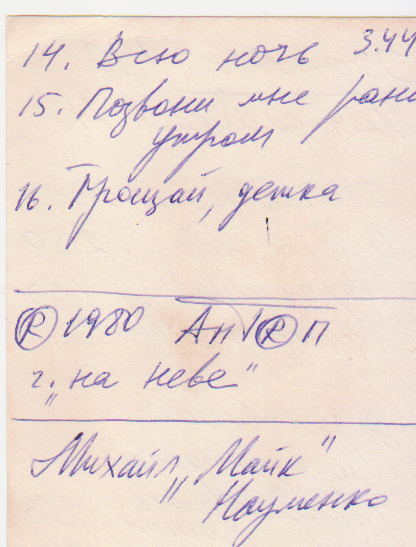 14. Всю ночь 3.44
15. Позвони мне рано
утром
16. Прощай, детка
Ⓡ 1980 Ан√Ⓡ П
г. „на неве"
Михаил „Майк"
Науменко